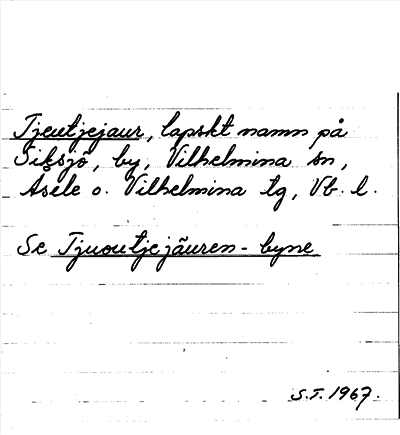 Tjeutjejaur, lapskt namn på
Siksjö, by, Vilhelmina sn,
Åsele o. Vilhelmina tg, Vb. l.
Se Tjuoutjejäuren-byne
S.T. 1967.